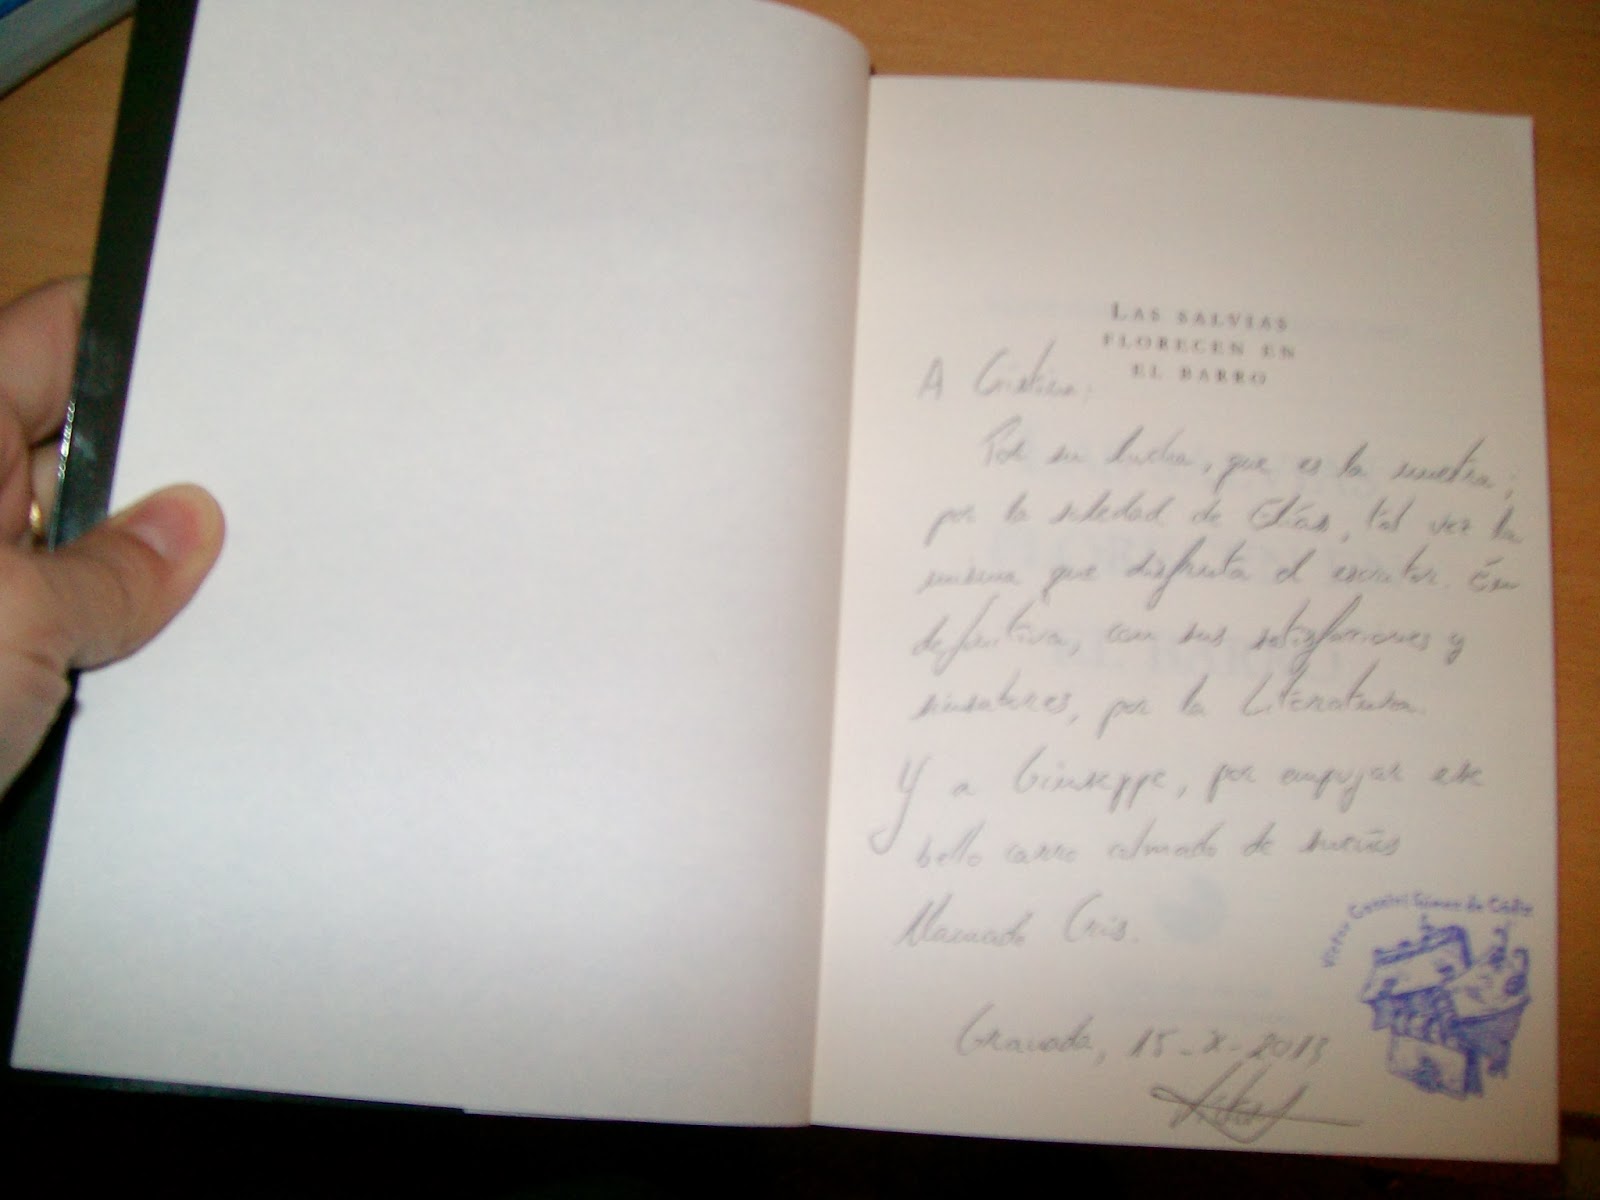 LAS SALVIAS
FLORECEN EN
EL BARRO
A Cristina:
Por su lucha, que es la nuestra;
por la soledad de Elías, tal vez la
misma que disfruta el escritor. En
definitiva, con sus satisfacciones y
sinsabores, por la Literatura.
Y a Giuseppe, por empujar ese
bello carro colmado de sueños
llamado Cris.
Granada, 15-X-2013
Víctor
Victor Gómez de Cádiz